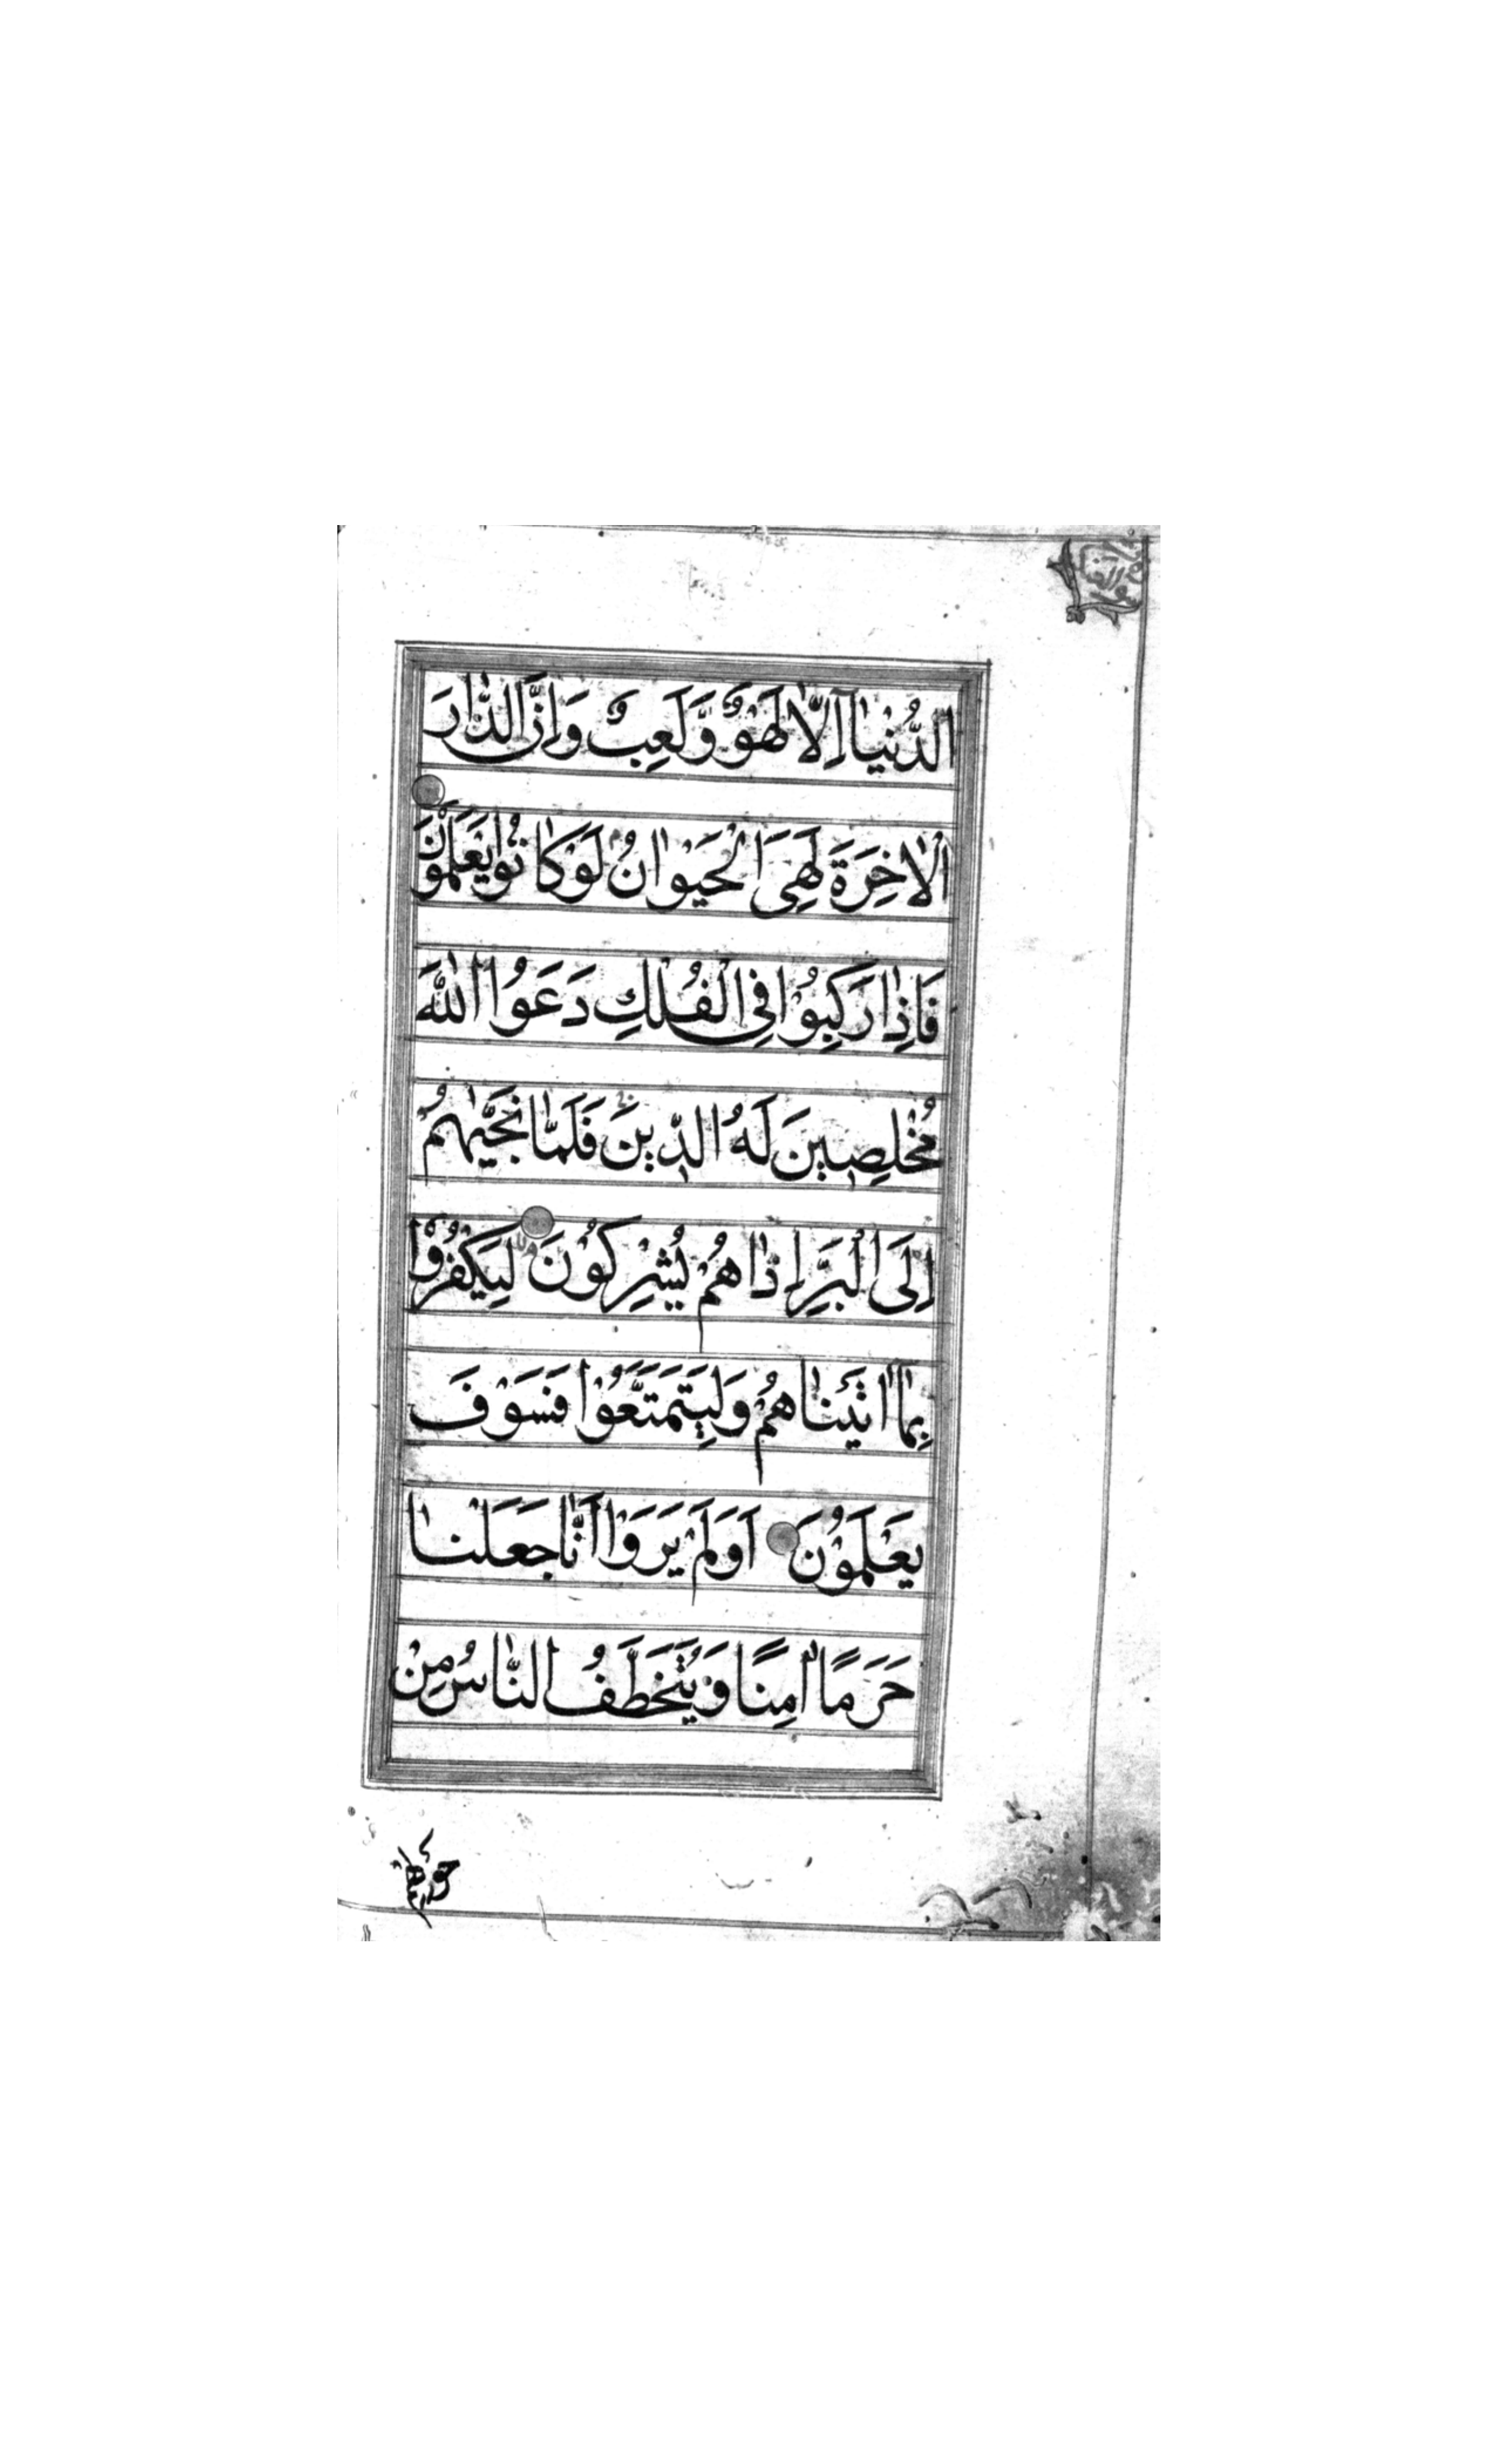 الدُّنْيٰٓا اِلّٰا لَهْوٌ وَّلَعِبٌ وَاِنَّ الدّٰارَ
الْاٰخِرَةَ لَهِىَ الْحَيَوٰانُ لَوْ كٰانُوْا يَعْلَمُوْنَ
فَاِذٰا رَكِبُوْا فِى الْفُلْكِ دَعَوُا اللّٰهَ
مُخْلِصِينَ لَهُ الدِّينَ فَلَمّٰا نَجّٰيهُمْ
اِلَى الْبَرِّ اِذٰا هُمْ يُشْرِكُوْنَ لِيَكْفُرُوْا
بِمٰٓا اٰتَيْنٰاهُمْ وَلِيَتَمَتَّعُوْا فَسَوْفَ
يَعْلَمُوْنَ اَوَلَمْ يَرَوْا اَنّٰا جَعَلْنٰا
حَرَمًا اٰمِنًا وَيُتَخَطَّفُ النّٰاسُ مِنْ
حولهم